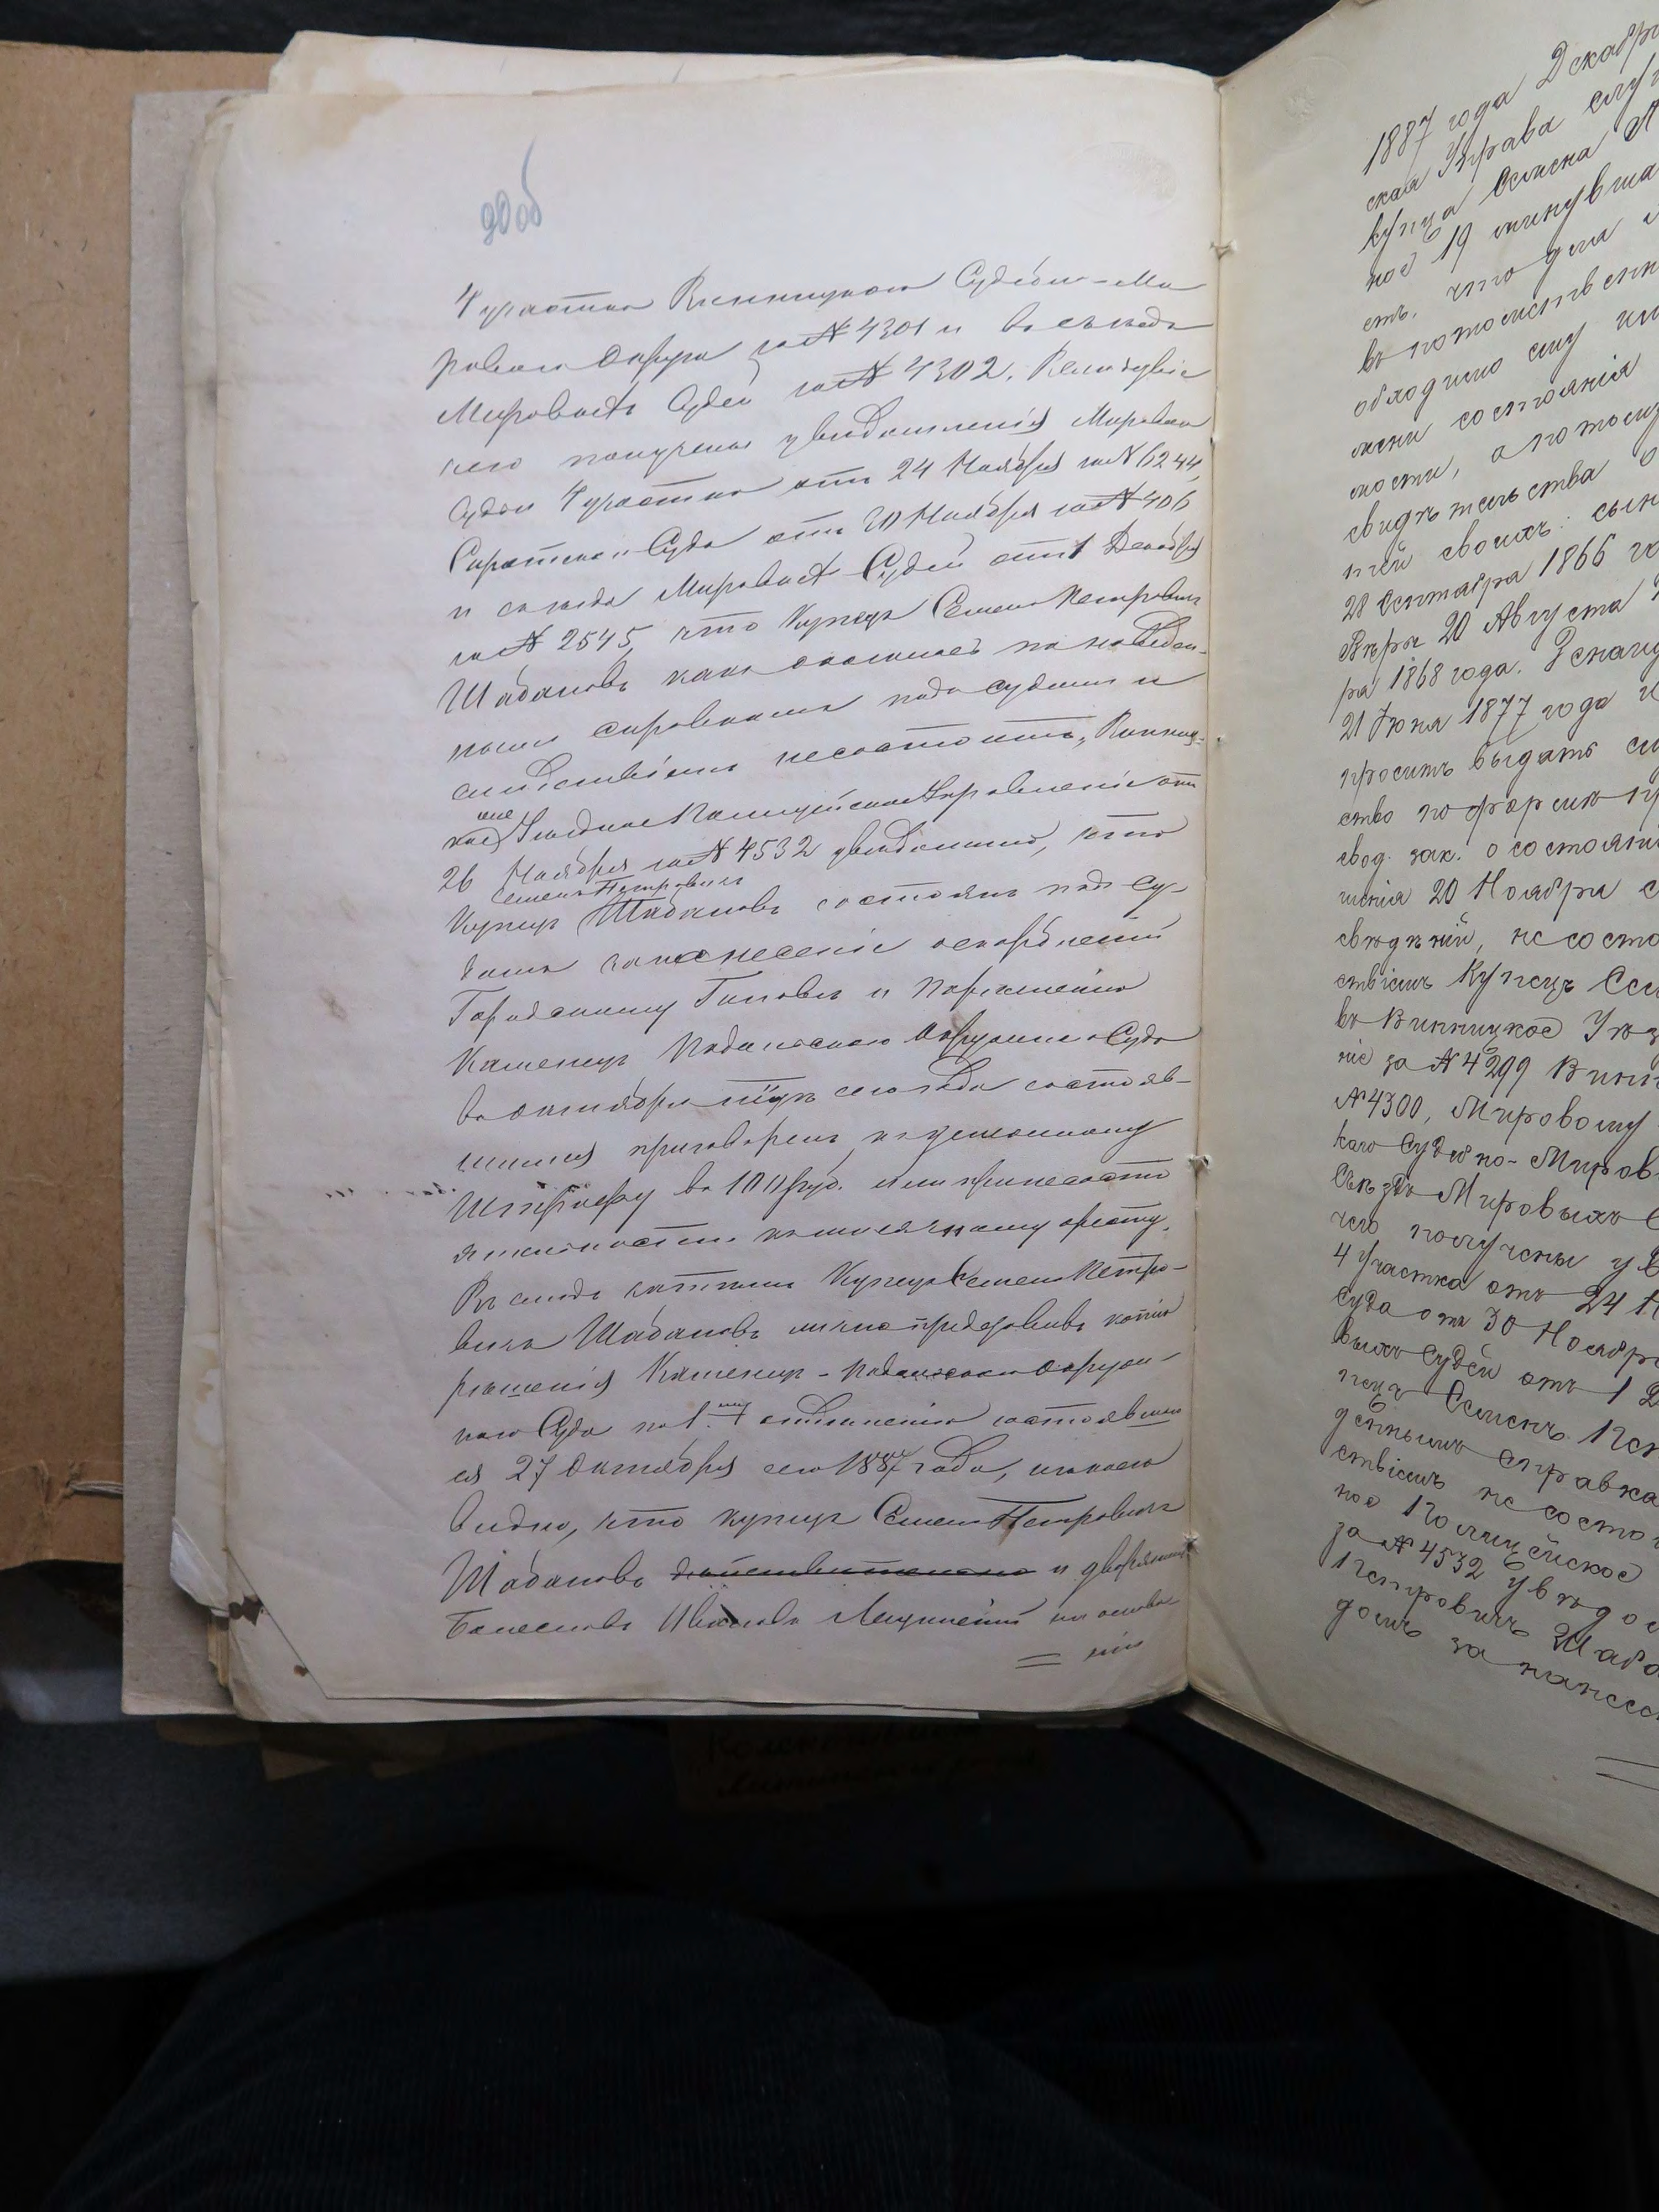 90об
4 участка Винницкого Судебно-Ми
роваго Округа за № 4301 и въ съездъ
Мировыхъ Судей за № 4302. Вследствіе
чего получены уведомленія Мироваго
Судьи 4 участка отъ 24 Ноября за № 6244,
Сиротскаго Суда отъ 30 Ноября за № 406
и съезда Мировыхъ Судей отъ 1 Декабря
за № 2545, что Купецъ Семенъ Петровичъ
Шабановъ какъ оказалось по наведен-
нымъ справкамъ подъ судомъ и
следствіемъ несостоитъ, Винниц-
кое Уездное Полицейское Управленіе отъ
26 Ноября за № 4532 уведомило, что
Семенъ Петровичъ
Купецъ Шабановъ состоялъ подъ су-
домъ за нанесеніе оскорбленій
Городскому Голове и по решенію
Каменецъ Подольскаго Окружнаго Суда
въ Октябре м-це сего года состояв-
шемся приговоренъ къ денежному
Штрафу въ 100 руб. или при несосто
ятельности къ месячному аресту.
Въ следъ затемъ Купецъ Семенъ Петро-
вичъ Шабановъ лично предъявивъ копію
решенія Каменецъ-Подольскаго Окруж-
наго Суда по 1му отделенію состоявшаго
ся 27 Октября сего 1887 года, изъ коего
видно, что купецъ Семенъ Петровичъ
Шабановъ действительно и дворянинъ
Болеславъ Ивановъ на основа
= ніи
1887 года Декабр
ская Управа слу
купца Семена
ное 19 минувша
етъ, что для
въ потомственн
обходимо ему
мени состоянія
ности, а потому
свидетельства о
тей своихъ: сын
28 Сентября 1866 го
Веры 20 Августа
ря 1868 года. Зенаид
21 Іюня 1877 года и
проситъ выдать
ство по форме пр
свод. зак. о состояні
шенія 20 Ноября с
сведеній, не состо
ствіемъ Купецъ Сем
въ Винницкое Уез
ніе за № 4299 Винн
№ 4300, Мировому
каго Судебно-Миров
Съездъ Мировыхъ С
чего получены ув
4 участка отъ 24 Н
Суда отъ 30 Ноября
выхъ Судей отъ 1 Д
пецъ Семенъ Пет
деннымъ справка
ствіемъ не состо
ное Полицейское
за № 4532 уведом
Петровичъ Шаба
домъ за нанесе